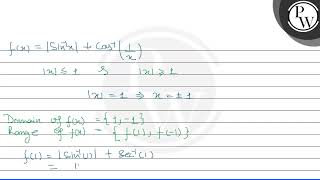 PW
f(x) = |Sin⁻¹x| + Cos⁻¹(1/x)
|x| ≤ 1 & |x| ≥ 1
|x| = 1 ⇒ x = ± 1
Domain of f(x) = {1, -1}
Range of f(x) = { f(1), f(-1) }
f(1) = |Sin⁻¹(1)| + Sec⁻¹(1)
=